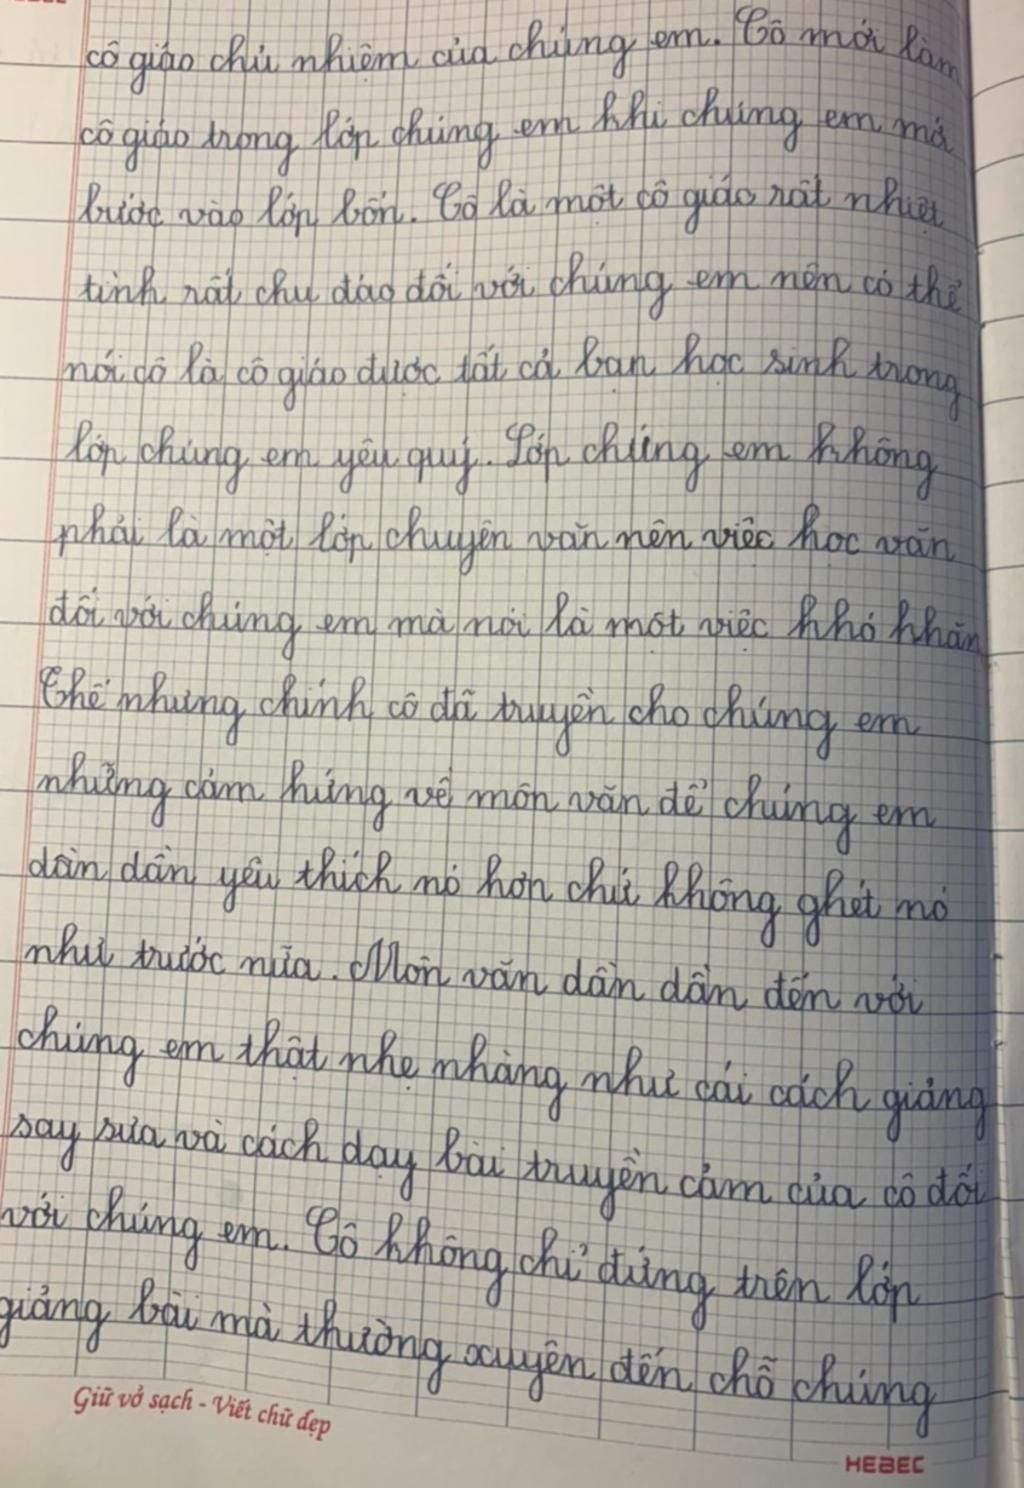 cô giáo chủ nhiệm của chúng em. Cô mới làm
cô giáo trong lớp chúng em khi chúng em mới
bước vào lớp bốn. Cô là một cô giáo rất nhiệt
tình rất chu đáo đối với chúng em nên có thể
nói cô là cô giáo được tất cả bạn học sinh trong
lớp chúng em yêu quý. Lớp chúng em không
phải là một lớp chuyên văn nên việc học văn
đối với chúng em mà nói là một việc khó khăn
Thế nhưng chính cô đã truyền cho chúng em
những cảm hứng về môn văn để chúng em
dần dần yêu thích nó hơn chứ không ghét nó
như trước nữa. Môn văn dần dần đến với
chúng em thật nhẹ nhàng như cái cách giảng
say sưa và cách dạy bài truyền cảm của cô đối
với chúng em. Cô không chỉ đứng trên lớp
giảng bài mà thường xuyên đến chỗ chúng
Giữ vở sạch - Viết chữ đẹp
HEBEC